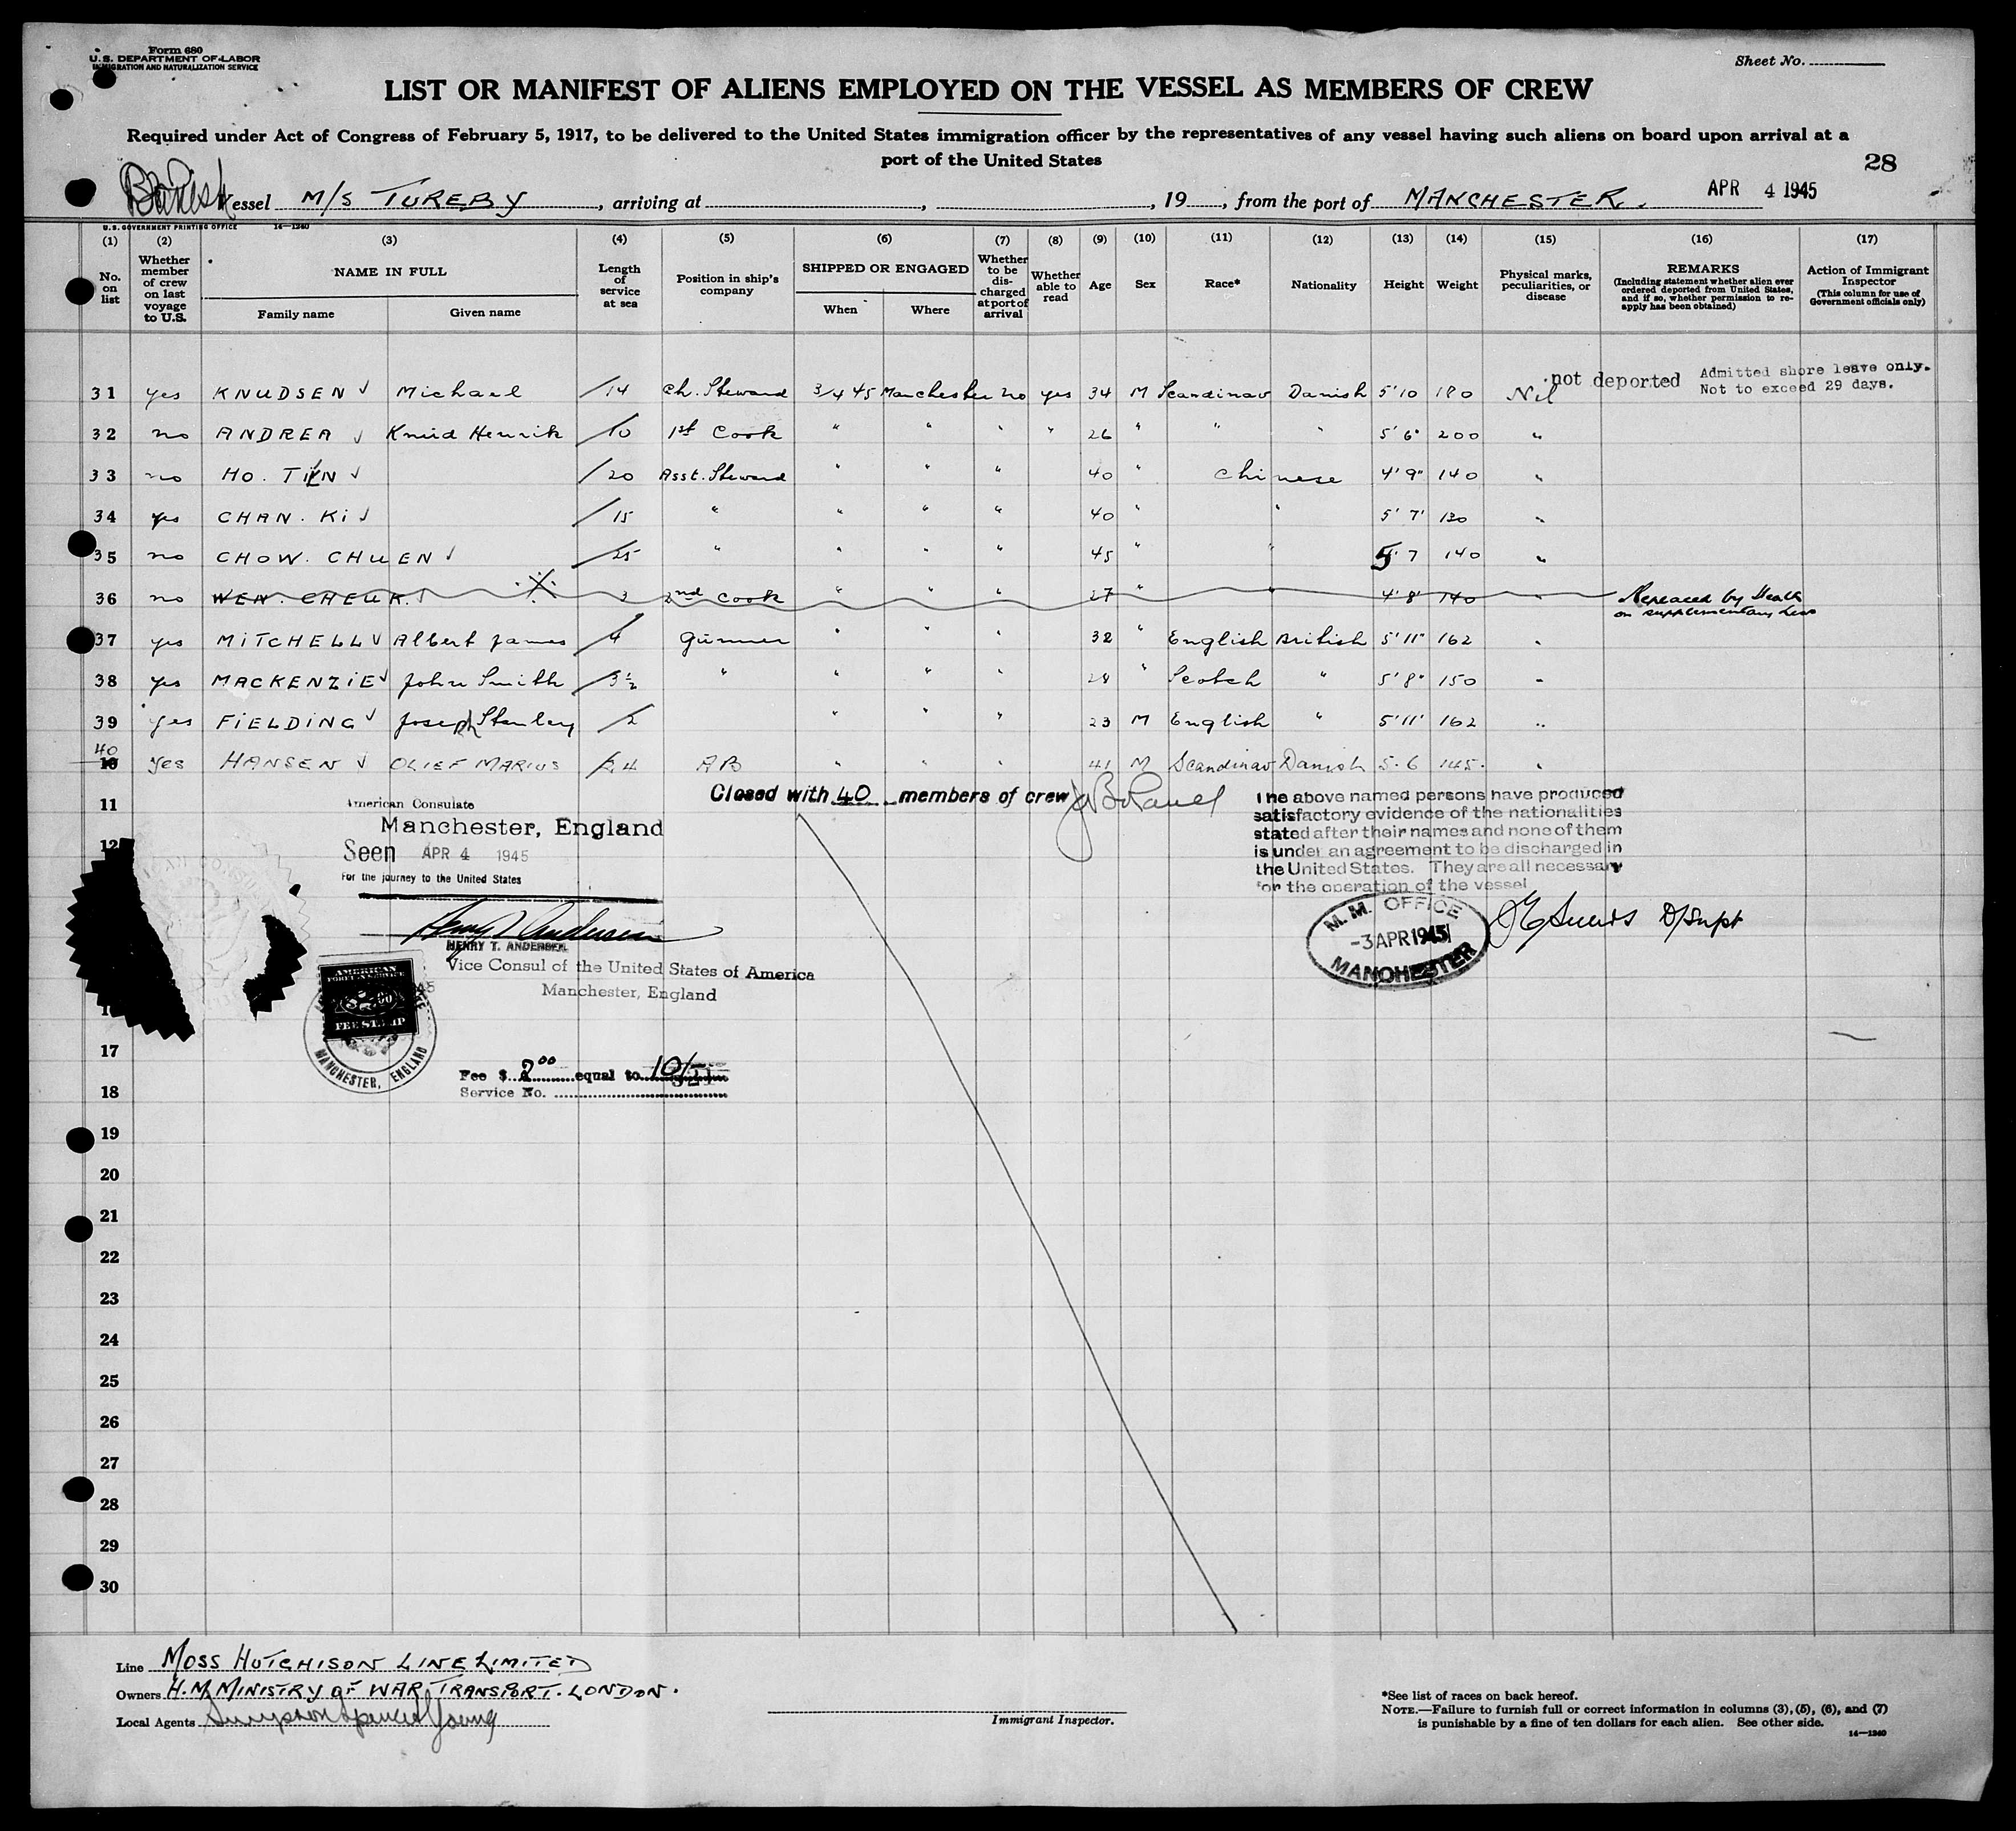 Form 680
U.S. DEPARTMENT OF LABOR
IMMIGRATION AND NATURALIZATION SERVICE
Sheet No.
LIST OR MANIFEST OF ALIENS EMPLOYED ON THE VESSEL AS MEMBERS OF CREW
Required under Act of Congress of February 5, 1917, to be delivered to the United States immigration officer by the representatives of any vessel having such aliens on board upon arrival at a
port of the United States
28
British Vessel M/S TUREBY, arriving at , , 19 , from the port of MANCHESTER. APR 4 1945
U.S. GOVERNMENT PRINTING OFFICE 14—1240
(1) (2) (3) (4) (5) (6) (7) (8) (9) (10) (11) (12) (13) (14) (15) (16) (17)
No. on list
Whether member of crew on last voyage to U.S.
NAME IN FULL
Family name Given name
Length of service at sea
Position in ship's company
SHIPPED OR ENGAGED
When Where
Whether to be discharged at port of arrival
Whether able to read
Age
Sex
Race*
Nationality
Height
Weight
Physical marks, peculiarities, or disease
REMARKS
(Including statement whether alien ever ordered deported from United States, and if so, whether permission to reapply has been obtained)
Action of Immigrant Inspector
(This column for use of Government officials only)
not deported Admitted shore leave only.
Not to exceed 29 days.
31 yes KNUDSEN Michael 14 Ch. Steward 3/4 45 Manchester no yes 34 M Scandinav Danish 5'10 180 Nil
32 no ANDREA Knud Henrik 10 1st Cook " " " " 26 " " " 5'6" 200 "
33 no HO. TIEN 20 Asst. Steward " " " 40 " Chinese 4'9" 140 "
34 yes CHAN. Ki 15 " " " " 40 " " 5'7' 130 "
35 no CHOW. CHUEN 25 " " " " 45 " " 5'7 140 "
36 no WEN. CHEUK. 3 2nd Cook " " " 27 " " 4'8' 140 " Replaced by
on supplementary
37 yes MITCHELL Albert James 4 Gunner " " " 32 " English British 5'11" 162 "
38 yes MACKENZIE John Smith 3½ " " " " 28 " Scotch " 5'8" 150 "
39 yes FIELDING Joseph Stanley 2 " " " 23 M English " 5'11' 162 "
40 10 yes HANSEN OLIEF MARIUS 24 AB " " " 41 M Scandinav Danish 5.6 145. "
11
Closed with 40 members of crew
American Consulate
Manchester, England
Seen APR 4 1945
For the journey to the United States
HENRY T. ANDERSEN
Vice Consul of the United States of America
Manchester, England
The above named persons have produced
satisfactory evidence of the nationalities
stated after their names and none of them
is under an agreement to be discharged in
the United States. They are all necessary
for the operation of the vessel
M. M. OFFICE
-3 APR 1945
MANCHESTER
D/Supt
12
AMERICAN
FOREIGN SERVICE
FEE STAMP
MANCHESTER, ENGLAND
Fee $ 2.00 equal to 10/-
Service No.
17
18
19
20
21
22
23
24
25
26
27
28
29
30
Line MOSS HUTCHISON LINE LIMITED
Owners H.M MINISTRY OF WAR TRANSPORT. LONDON.
Local Agents Simpson Spence & Young
Immigrant Inspector.
*See list of races on back hereof.
NOTE.—Failure to furnish full or correct information in columns (3), (5), (6), and (7)
is punishable by a fine of ten dollars for each alien. See other side.
14—1240